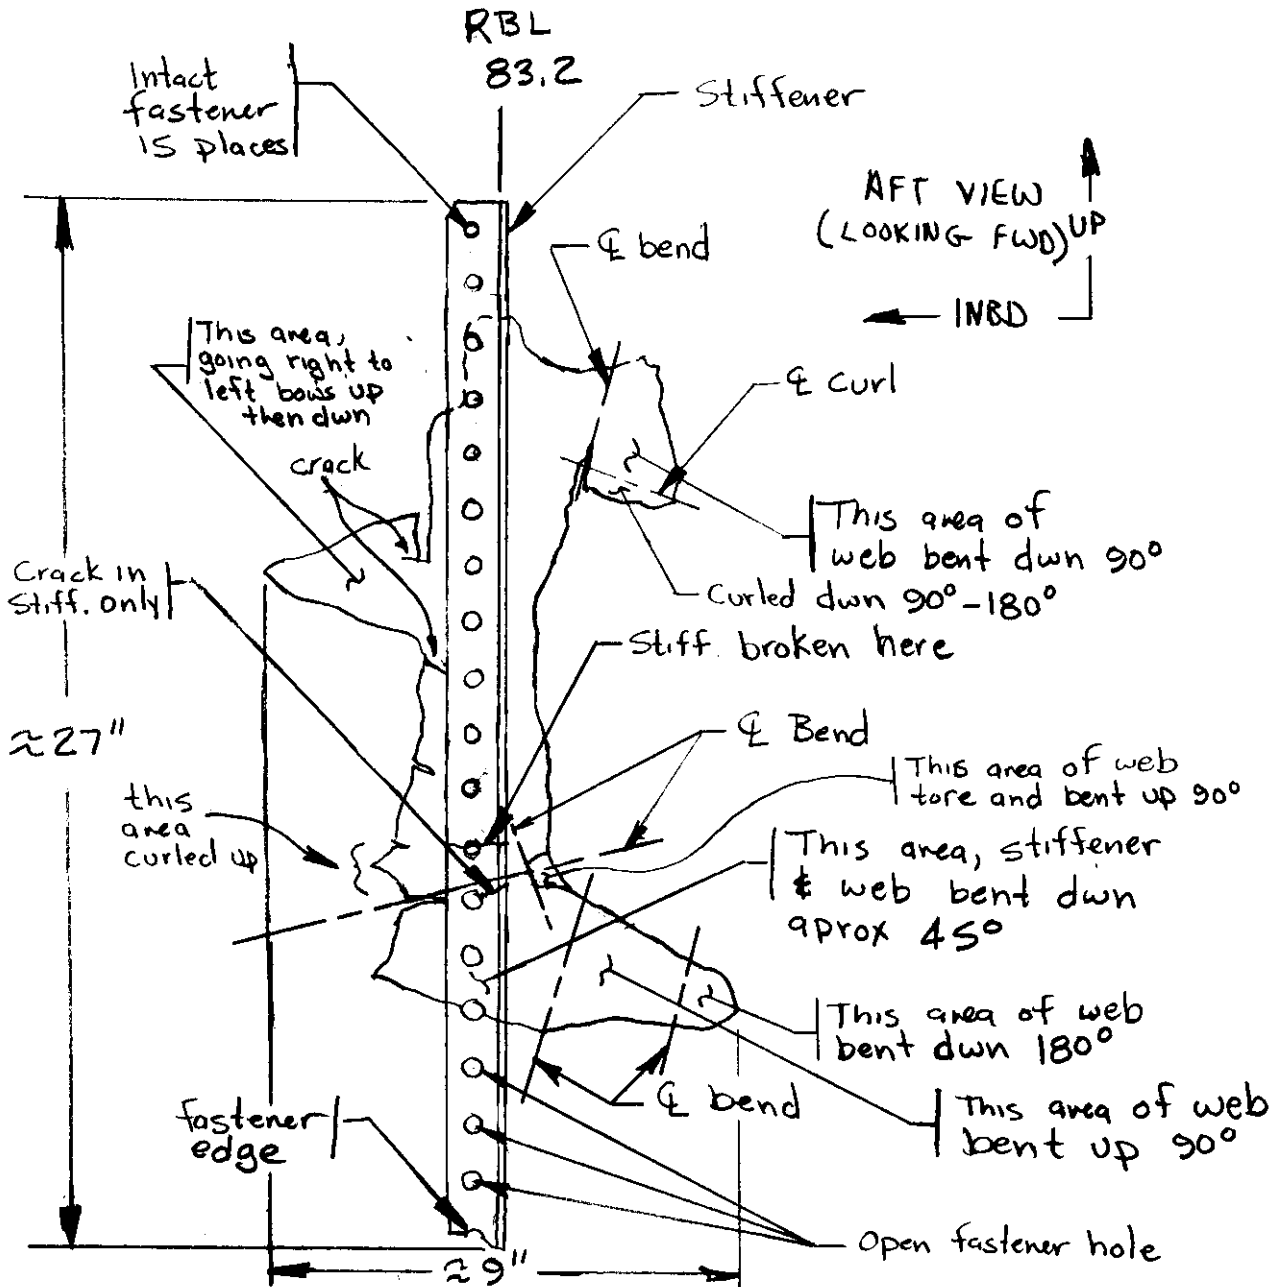 RBL
83.2
Intact
fastener
15 places
Stiffener
AFT VIEW
(LOOKING FWD)
UP
INBD
℄ bend
This area,
going right to
left bows up
then dwn
℄ Curl
crack
This area of
web bent dwn 90°
Crack in
Stiff. only
Curled dwn 90°-180°
Stiff. broken here
≈27"
℄ Bend
This area of web
tore and bent up 90°
this
area
curled up
This area, stiffener
& web bent dwn
aprox 45°
This area of web
bent dwn 180°
℄ bend
fastener
edge
This area of web
bent up 90°
Open fastener hole
≈9"